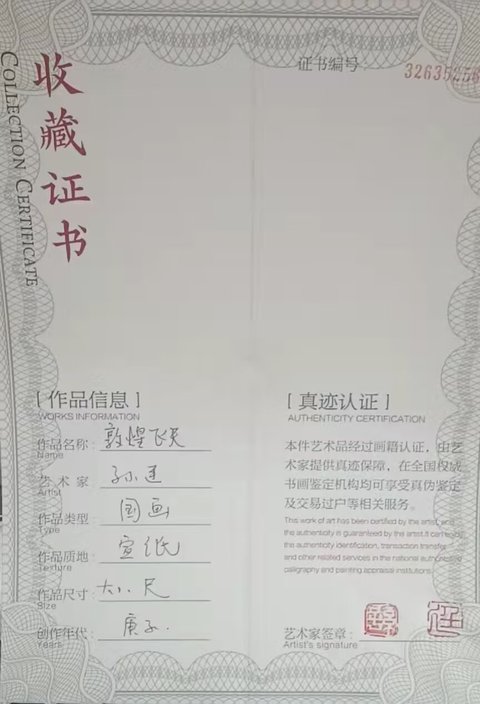 收藏证书
COLLECTION CERTIFICATE
证书编号
[ 作品信息 ]
WORKS INFORMATION
作品名称: 敦煌飞天
Name
艺 术 家
Artist
作品类型: 国画
Type
作品质地: 宣纸
Texture
作品尺寸: 尺
Size
创作年代: 庚子.
Years
[ 真迹认证 ]
AUTHENTICITY CERTIFICATION
本件艺术品经过画籍认证，由艺
术家提供真迹保障，在全国权威
书画鉴定机构均可享受真伪鉴定
及交易过户等相关服务。
This work of art has been certified by the artist, and
the authenticity is guaranteed by the artist.It can enjoy
the authenticity identification, transaction transfer
and other related services in the national authoritative
calligraphy and painting appraisal institutions.
艺术家签章:
Artist's signature